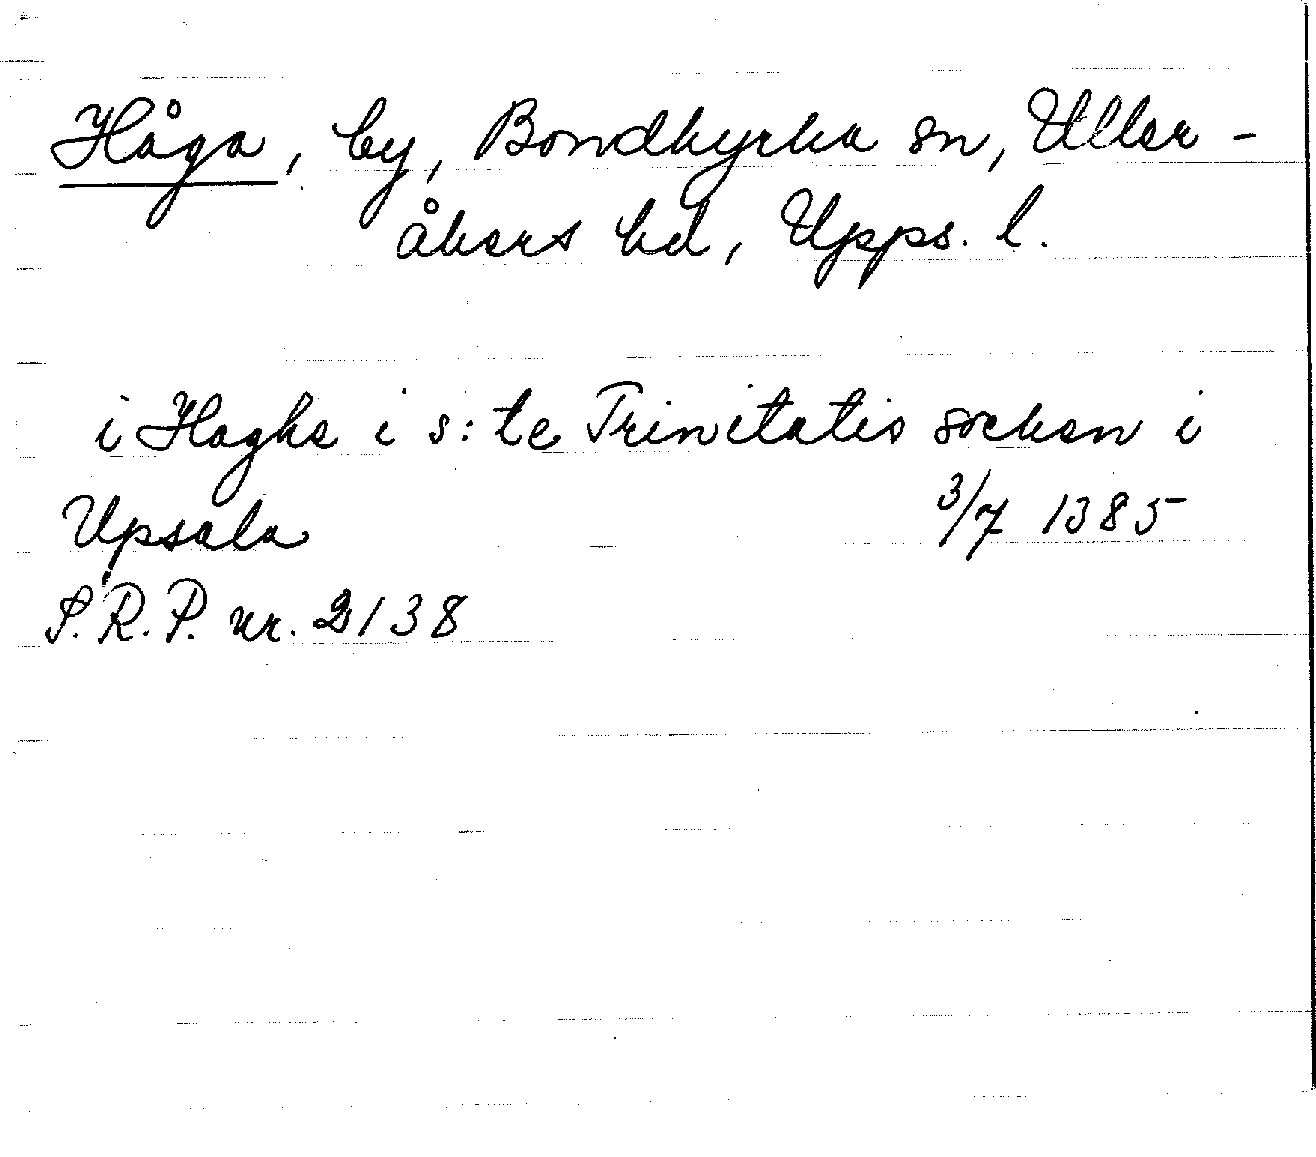 Håga, by, Bondkyrka sn, Uller-
åkers hd, Upps. l.
i Haghe i s:te Trinitatis socken i
Upsala 3/7 1385
S.R.P. nr. 2138